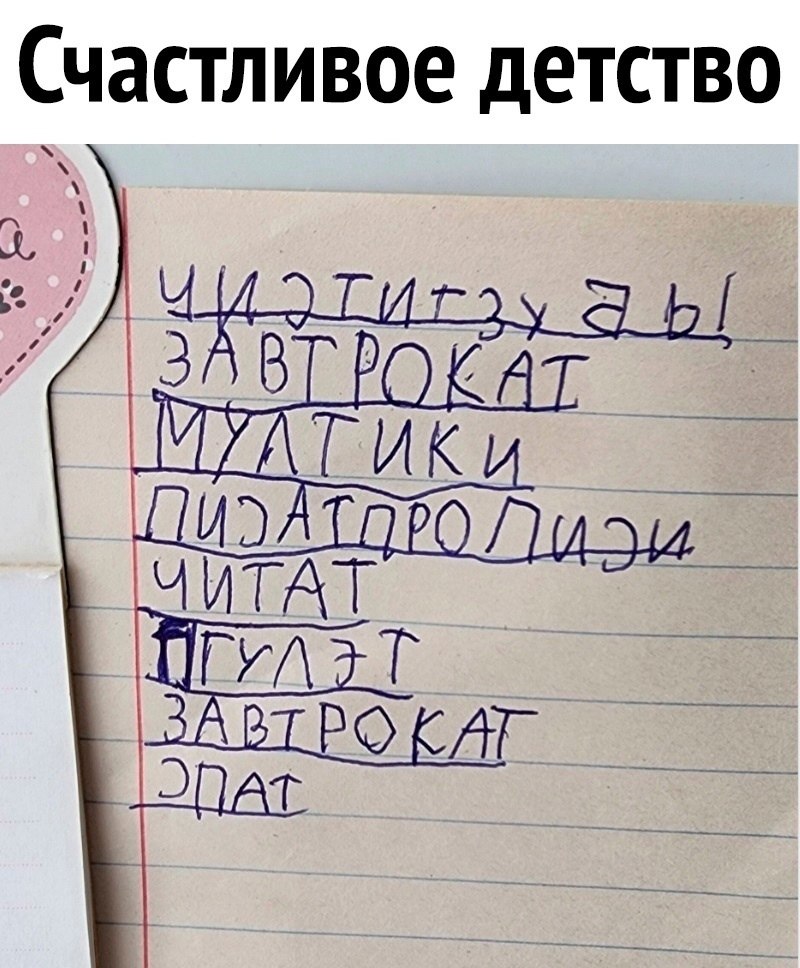 Счастливое детство
а
ЧИЭТИТЗУБЫ
ЗАВТРОКАТ
МУЛТИКИ
ПИЭАТПРОПИЭИ
ЧИТАТ
ГУЛЭТ
ЗАВТРОКАТ
ЭПАТ